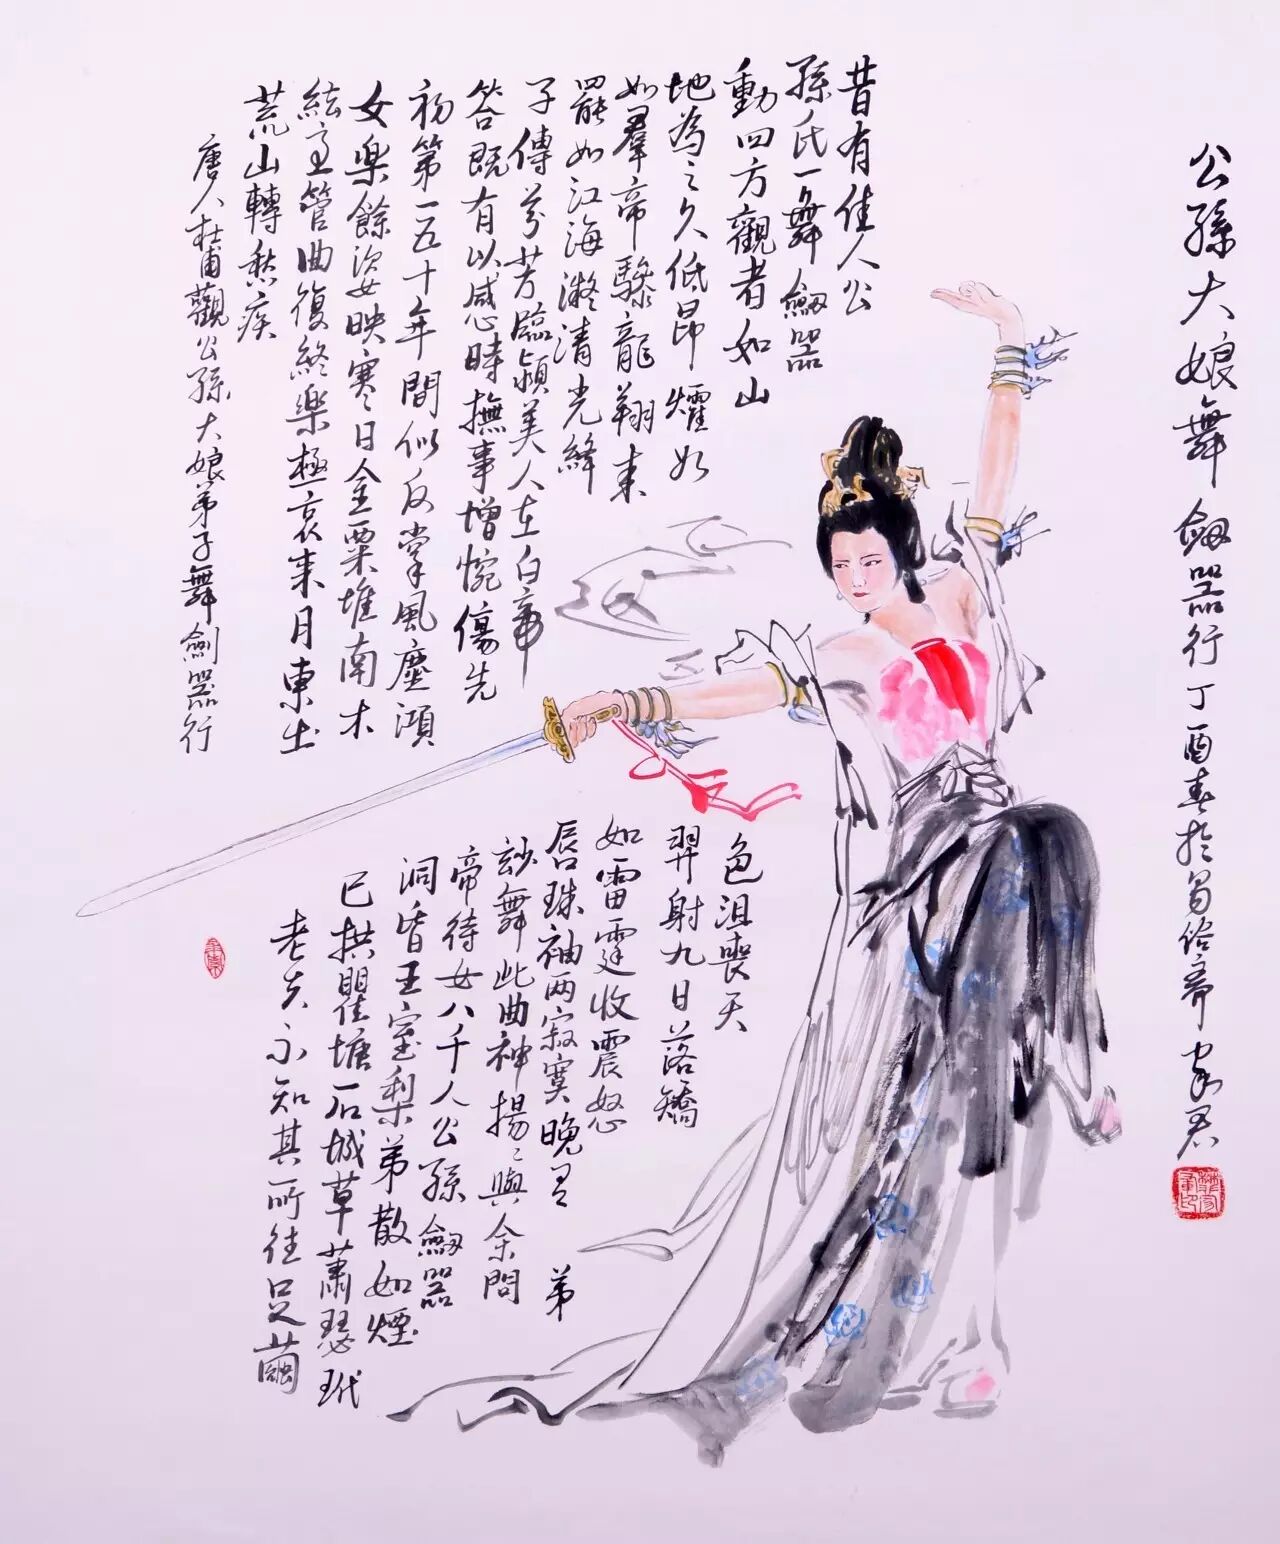 公孫大娘舞劒器行丁酉春於
昔有佳人公
孫氏一舞劒器
動四方觀者如山
色沮喪天
地為之久低昂㸌如
羿射九日落矯
如羣帝驂龍翔來
如雷霆收震怒
罷如江海凝清光絳
唇珠袖两寂寞晚有弟
子傳芬芳臨潁美人在白帝
玅舞此曲神揚〻與余問
答既有以感時撫事增惋傷先
帝待女八千人公孫劒器
初第一五十年間似反掌風塵澒
洞昏王室梨弟散如煙
女樂餘姿映寒日金粟堆南木
已拱瞿塘石城草蕭瑟玳
絃急管曲復終樂極哀來月東出
老夫不知其所往足繭
荒山轉愁疾
唐人杜甫觀公孫大娘弟子舞劍器行